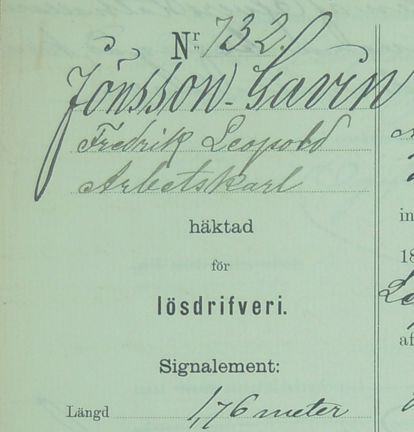 Nr 732.
Jönsson-Gavin
Fredrik Leopold
Arbetskarl
häktad
för
lösdrifveri.
in
18
Le
af
Signalement:
Längd 1,76 meter